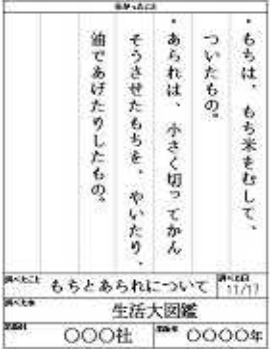 分かったこと
・もちは、もち米をむして、
ついたもの。
・あられは、小さく切ってかん
そうさせたもちを、やいたり、
油であげたりしたもの。
調べたこと
もちとあられについて
調べた日
11/17
調べた本
生活大図鑑
出版社
〇〇〇社
出版年
〇〇〇〇年